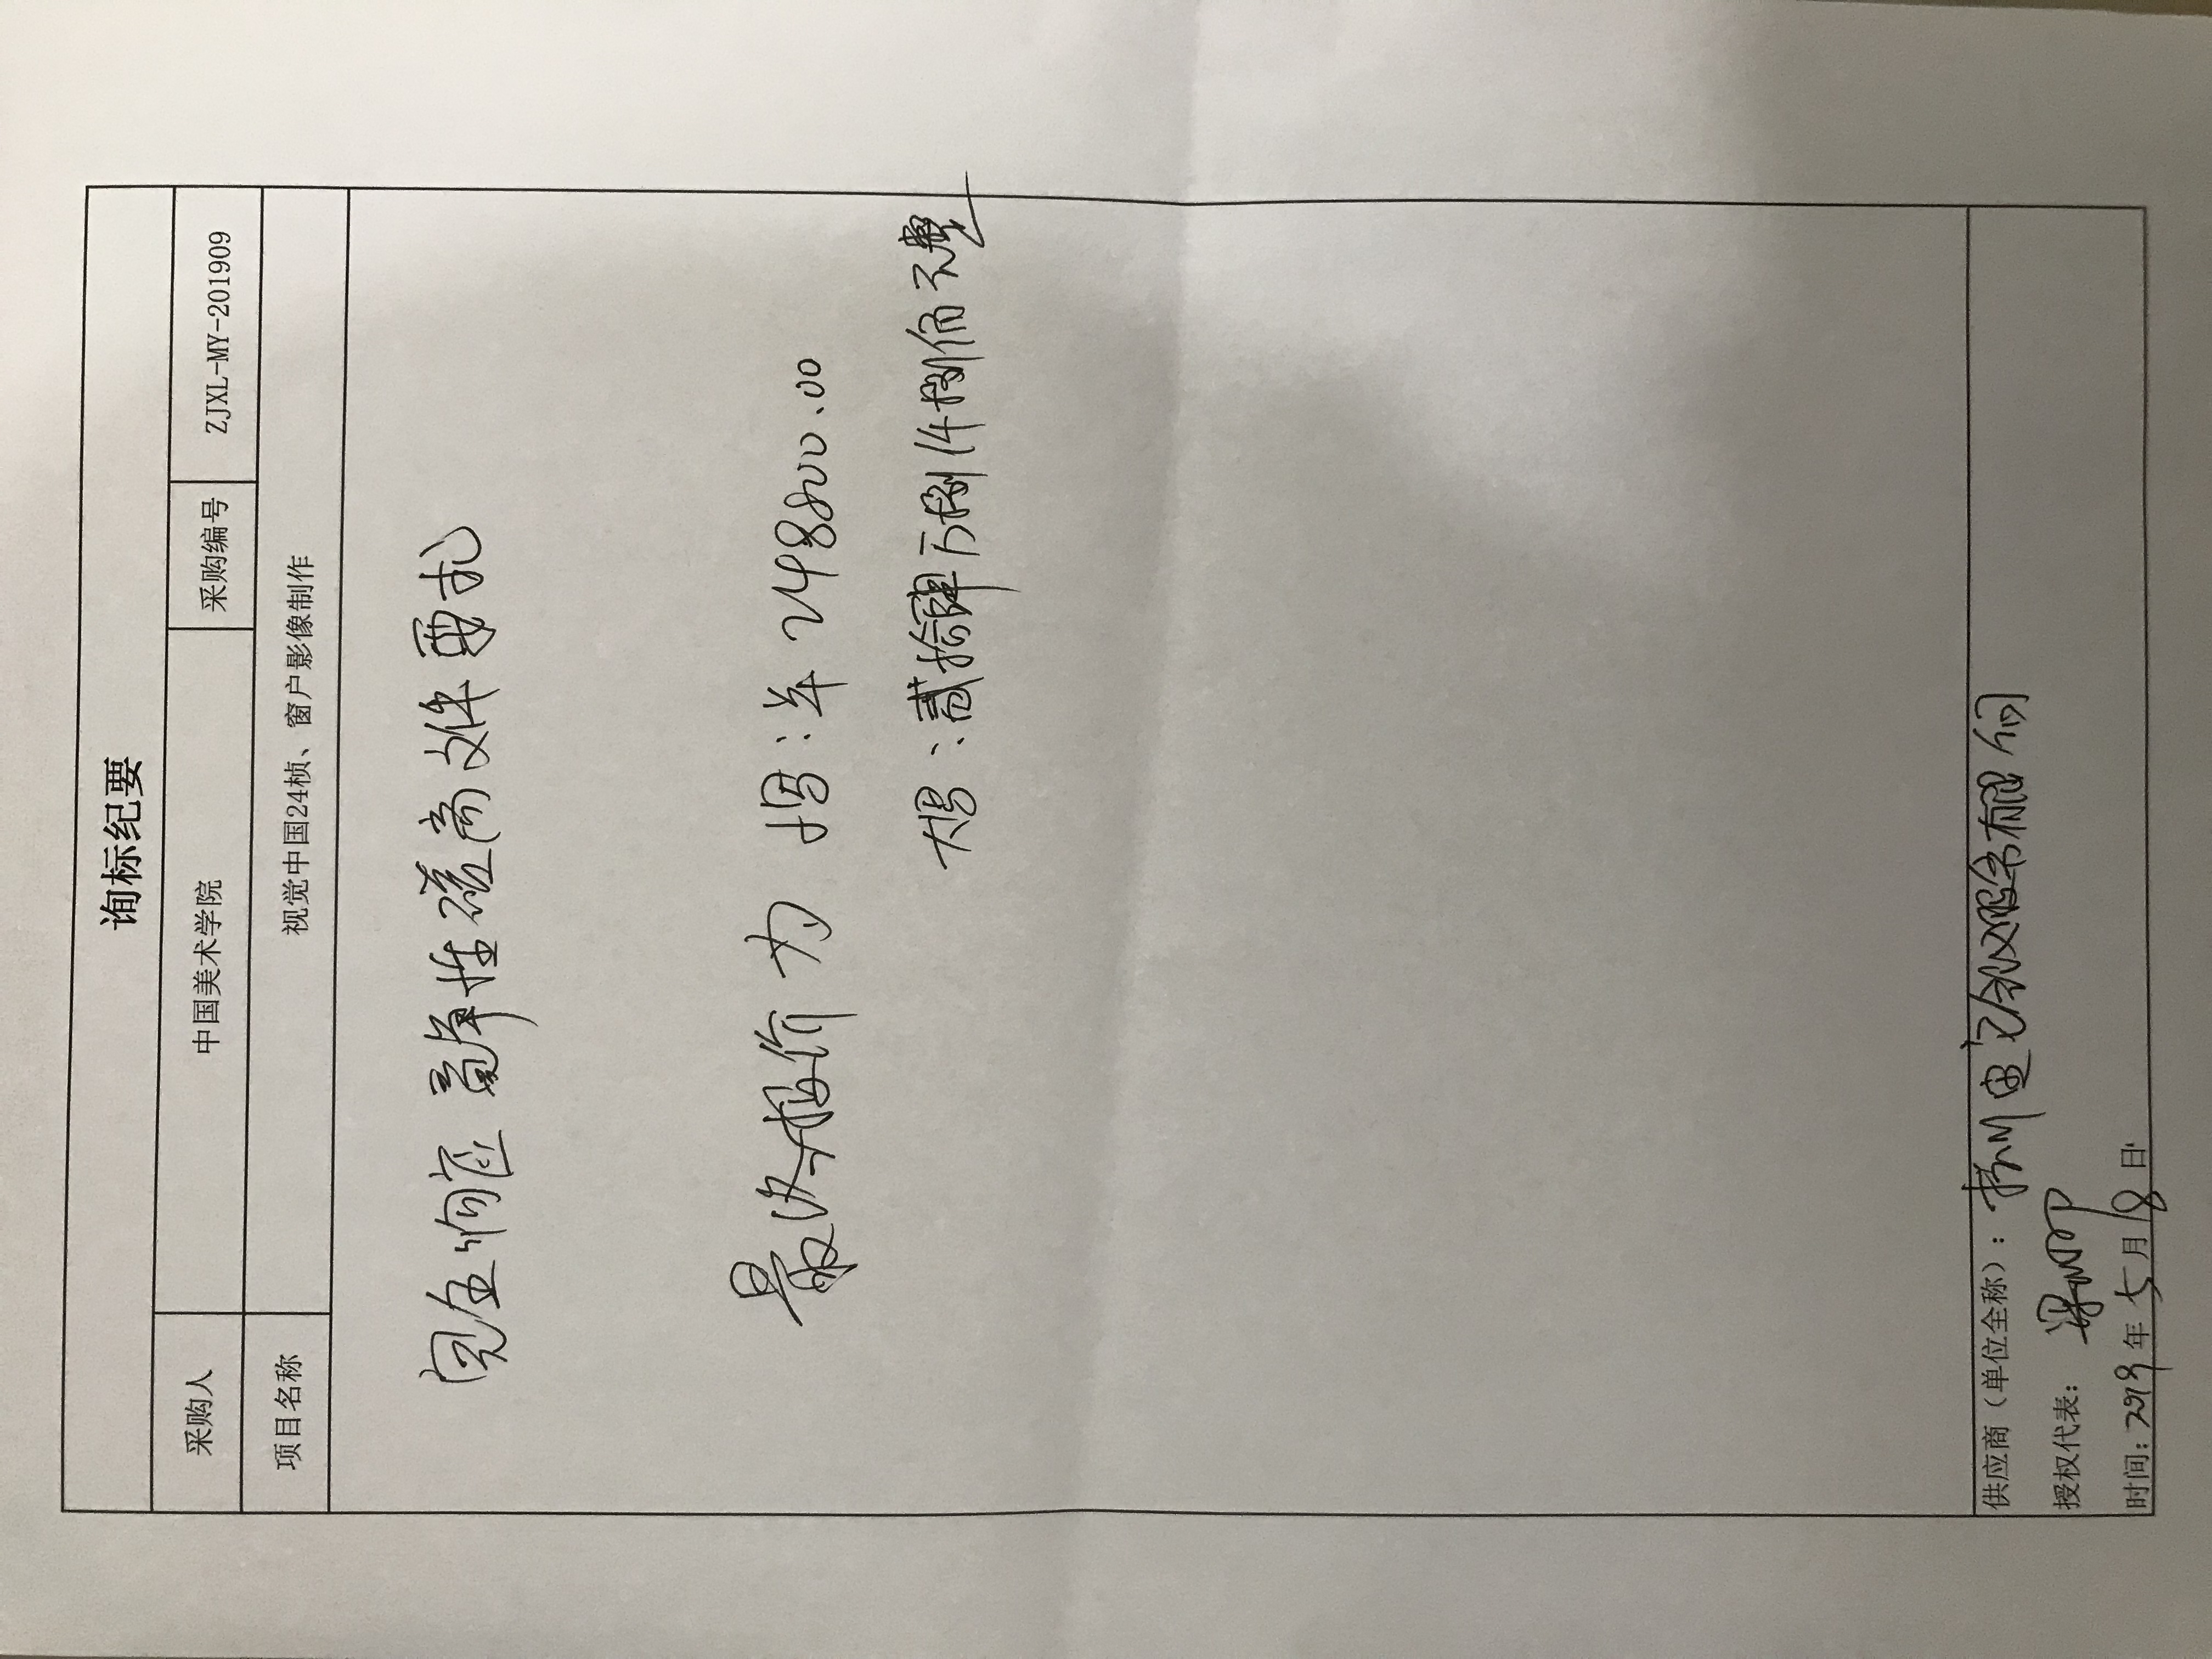 询标纪要
采购人 中国美术学院 采购编号 ZJXL-MY-201909
项目名称 视觉中国24桢、窗户影像制作
完全响应竞争性磋商文件要求
最终报价为 小写:羊 248800.00
大写:贰拾肆万捌仟捌佰元整
供应商(单位全称): 杭州 有限公司
授权代表:
时间: 2019年5月18日